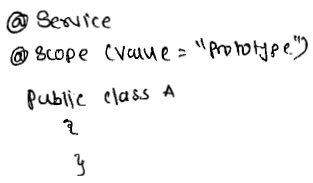 @ Service
@ Scope (value = "Prototype")
Public class A
{
}